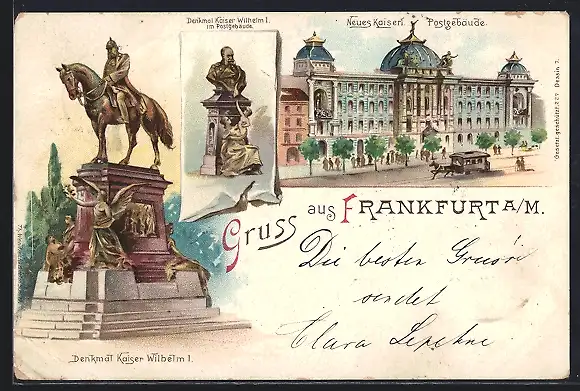 Denkmal Kaiser Wilhelm I.
im Postgebäude.
Neues Kaiserl. Postgebäude.
Gesetzl. geschützt. Dessin 7.
Gruss aus FRANKFURT A/M.
Die besten Grüsse
sendet
Clara
Denkmal Kaiser Wilhelm I.